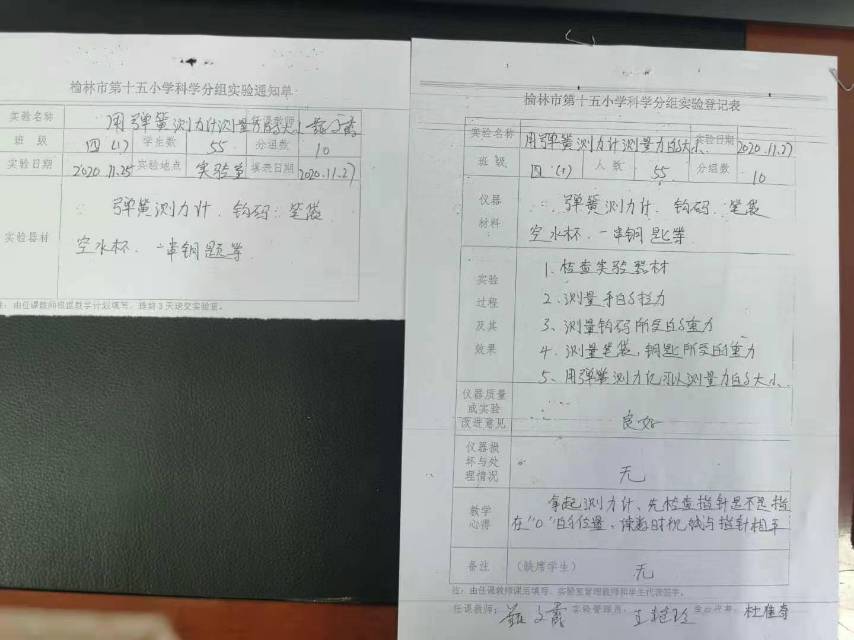 榆林市第十五小学科学分组实验通知单
实验名称 用弹簧测力计测量力的大小
班 级 四(1) 学生数 55 分组数 10
实验日期 2020.11.25 实验地点 实验室 填表日期 2020.11.27
实验器材
弹簧测力计、钩码、笔袋
空水杯、一串钥匙等
注：由任课教师根据教学计划填写，提前3天送交实验室。
榆林市第十五小学科学分组实验登记表
实验名称 用弹簧测力计测量力的大小 实验日期 2020.11.27
班 级 四(1) 人 数 55 分组数 10
仪器
材料
弹簧测力计、钩码、笔袋
空水杯、一串钥匙等
实验
过程
及其
效果
1、检查实验器材
2、测量手的拉力
3、测量钩码所受的重力
4、测量笔袋，钥匙所受的重力
5、用弹簧测力计可以测量力的大小
仪器质量
或实验
改进意见
良好
仪器损
坏与处
理情况
无
教学
心得
拿起测力计、先检查指针是不是指
在"0"的位置、读数时视线与指针相平
备注 (缺席学生) 无
注：由任课教师课后填写，实验室管理教师和学生代表签字。
任课教师： 实验管理员： 学生代表：